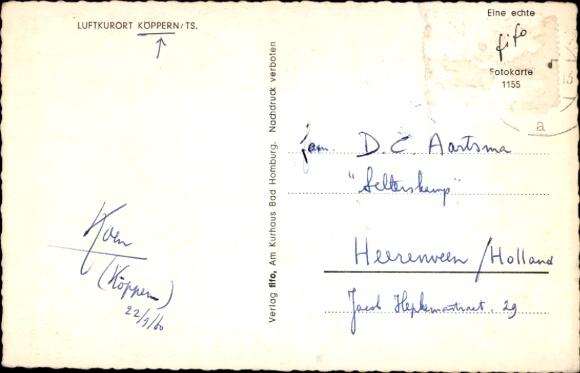 LUFTKURORT KÖPPERN/TS.
Eine echte
fifo
Fotokarte
1155
13
a
Verlag fifo, Am Kurhaus Bad Homburg. Nachdruck verboten
fam. D. C. Aartsma
"Selterskamp"
Heerenveen/Holland
Jacob Hepkemastraat. 29
Koen
(Köppern)
22/9/60